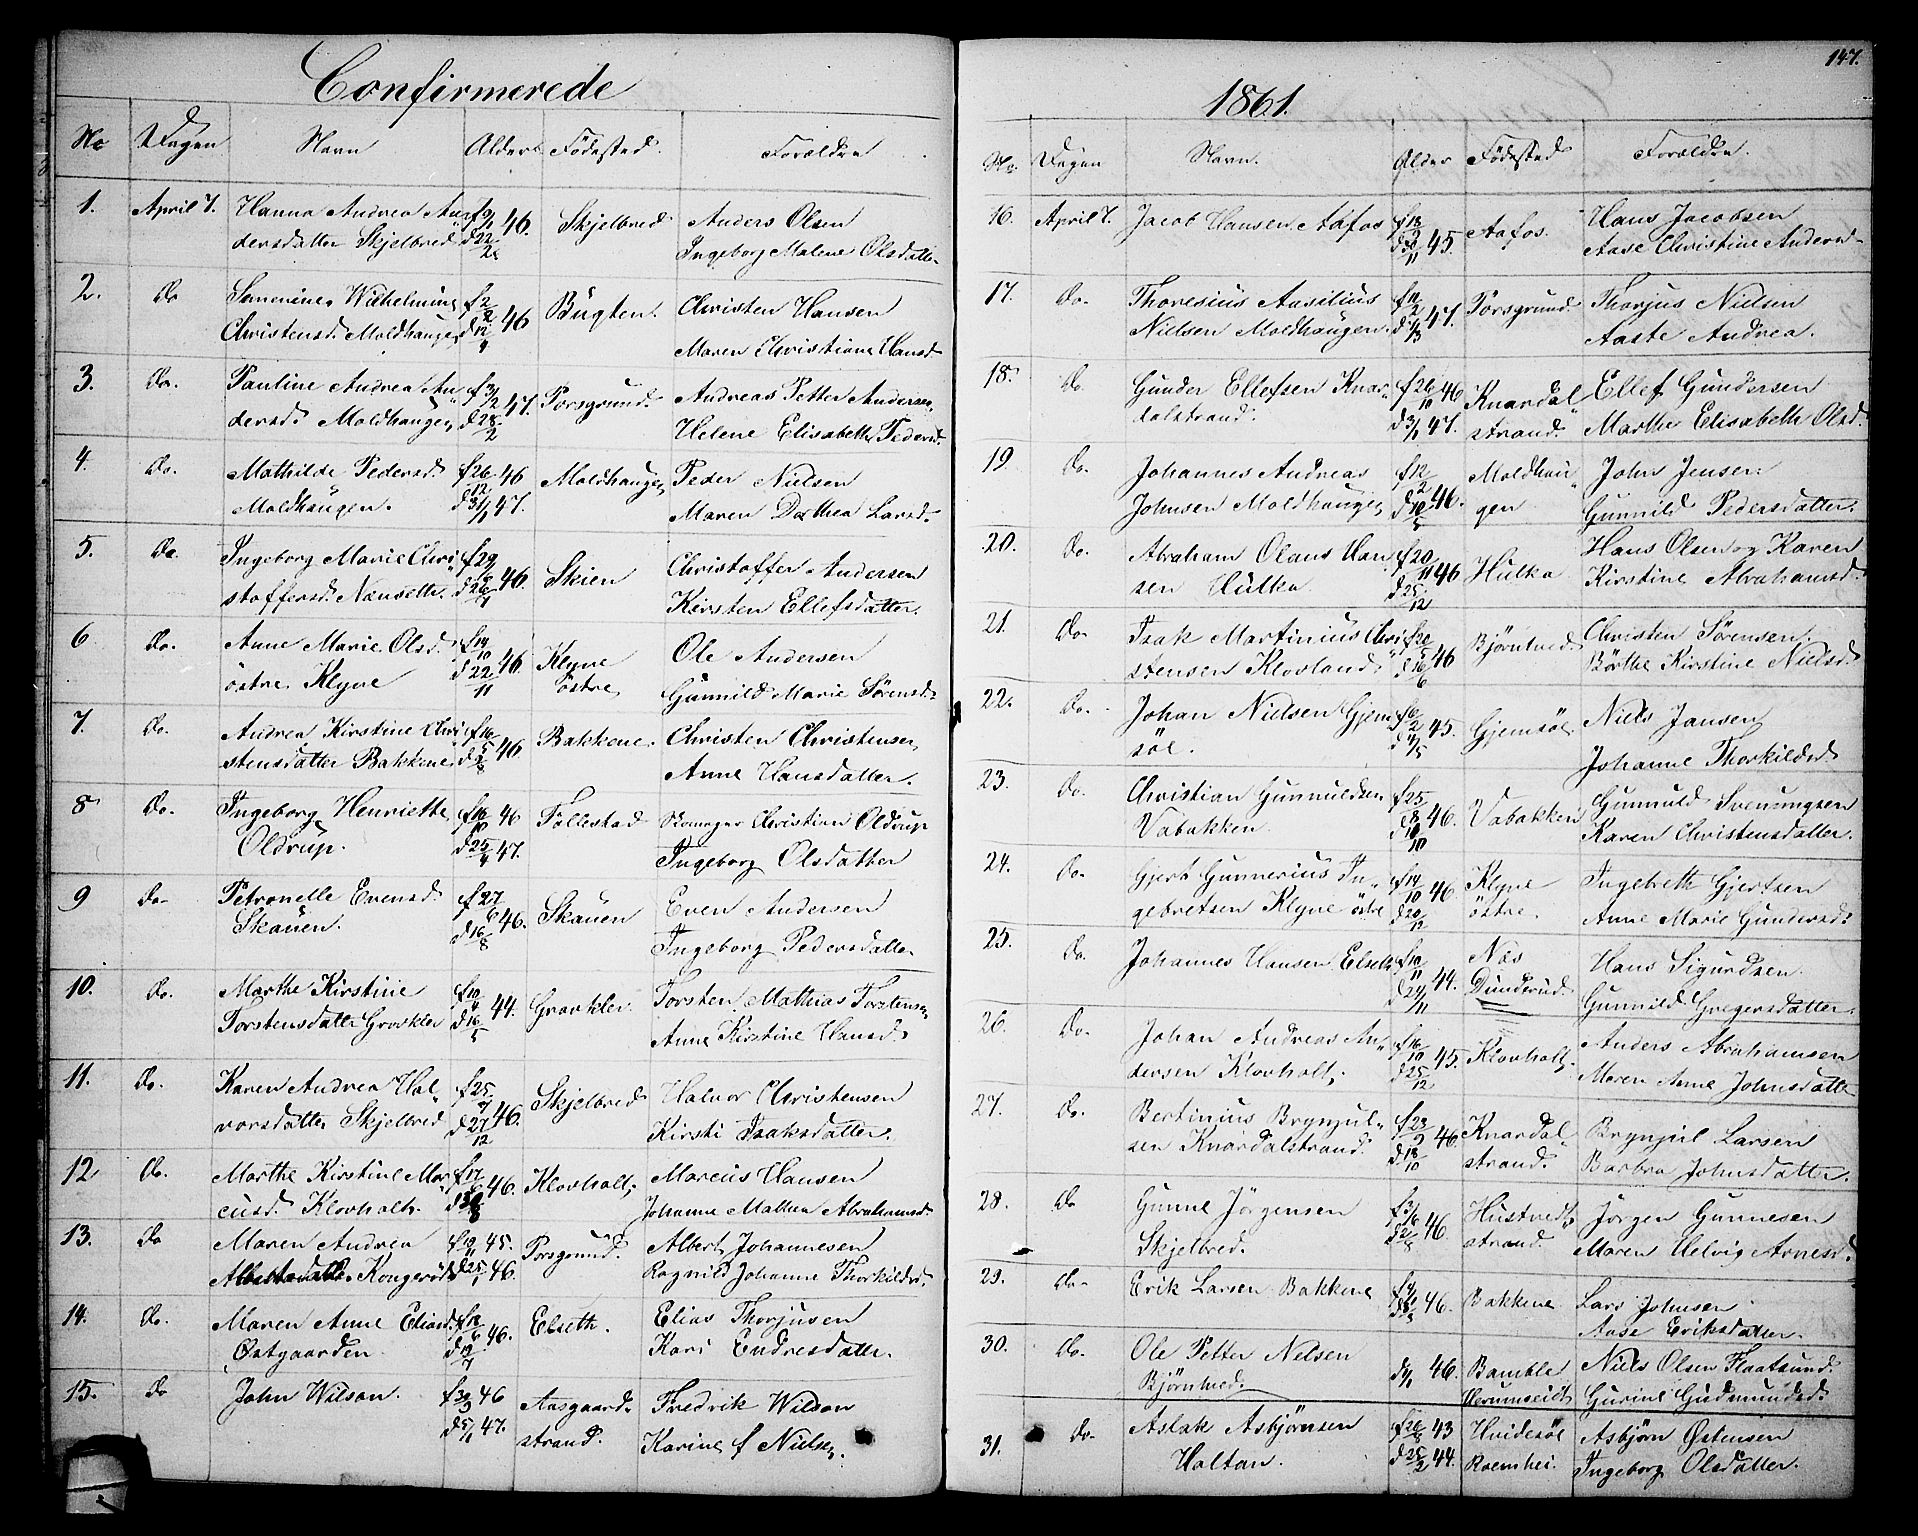 Confirmerede
No Dagen Navn Alder Födested. Forældre
1. April 7. Hanna Andrea An- f 9/1 46. Skjelbred Anders Olsen
dersdatter Skjelbred d 22/2 Ingeborg Malene Olsdatter
2. Do Wilhelmine f 2/2 46 Bugten. Christen Hansen
Christensd. Moldhaugen d 12/4 Maren Christiane Hansd.
3. Do. Pauline Andrea An- f 3/2 47. Porsgrund. Andreas Petter Andersen
dersd. Moldhaugen d 28/2 Helene Elisabeth Pedersd.
4. Do. Mathilde Pedersd. f 26/12 46 Moldhaugen Peder Nielsen
Moldhaugen. d 31/1 47. Maren Dorthea Larsd.
5. Do. Ingeborg Marie Chri- f 29/ 46. Skien Christoffer Andersen
stoffersd. d 26/ Kirsten Ellefsdatter.
6 Do. Anne Marie Olsd. f 14/10 46. Klyve Ole Andersen
östre Klyve d 22/11 östre Gunnild Marie Sörensd.
7. Do. Andrea Kirstine Chri- f 16/5 46. Bakkene. Christen Christensen
stensdatter Bakkene d /8 Anne Hansdatter.
8 Do. Ingeborg Henriette f 16/10 46 Follestad Christian Oldrup
Oldrup. d 25/4 47. Ingeborg Olsdatter
9 Do. Petronelle Evensd. f 27/6 46. Skauen Even Andersen
Skauen. d 16/8 Ingeborg Pedersdatter
10. Do. Marthe Kirstine f 10/4 44. Gravkler. Torsten Mathias Torstensen
Torstensdatter Gravkler d 16/5 Anne Kirstine Hansd.
11. Do. Karen Andrea Hal- f 25/7 46. Skjelbred Halvor Christensen
vorsdatter Skjelbred d 27/12 Kirsti Isaksdatter.
12 Do. Marthe Kirstine Mar- f 17/6 46. Klovholt, Marcus Hansen
cusd. Klovholt. d /8 Johanne Mathea Abrahamsd.
13. Do Maren Andrea f 19/11 45. Porsgrund. Albert Johannesen
Albertsdatter Kongeröd d 25/1 46. Ragnild Johanne Thorkildsd.
14. Do. Maren Anne Eliasd. f 18/6 46. Elseth. Elias Thorjusen
Østgaarden d 12/7 Kari Endresdatter.
15. Do John Wilson. f 30/9 46 Aasgaard- Fredrik Wilson
d 5/1 47. strand. Karine f Nielsen.
147.
1861.
No. Dagen Navn. Alder Födested Forældre.
16. April 7. Jacob Hansen Aafos f 18/9 45. Aafos. Hans Jacobsen
d 30/11 Aase Christine Andersd.
17. Do. Thoresius Aasilius f 11/2 47. Porsgrund. Thorjus Nielsen
Nielsen Moldhaugen. d /3 Aaste Andrea.
18. Do. Gunder Ellefsen Knar- f 26/10 46 Knardal- Ellef Gundersen
dalstrand. d 3/1 47. strand. Marthe Elisabeth Olsd.
19. Do. Johannes Andreas f 12/2 46. Moldhau- John Jensen
Johnsen Moldhaugen d 10/5 gen Gunnild Pedersdatter.
20. Do. Abraham Olaus Han f 20/11 46 Hulka Hans Olsen og Karen
sen Hulka. d 25/12 Kirstine Abrahamsd.
21. Do. Isak Martinius Chri- f 20/5 46 Björntved. Christen Sörensen.
stensen Klovland. d 16/6 Börthe Kirstine Nielsd.
22. Do. Johan Nielsen Gjem- f 6/2 45. Gjemsöe Niels Jansen
söe. d 4/5 Johanne Thorkildsd.
23. Do. Christian Gunnuldsen f 25/8 46. Vabakken Gunnuld Svenungsen
Vabakken. d 10/10 Karen Christensdatter.
24. Do. Gjert Gunnerius In- f 14/10 46. Klyve Ingebreth Gjertsen
gebretsen Klyve östre d 20/12 östre. Anne Marie Gundersd.
25. Do. Johannes Hansen Elseth f 10/11 44. Næs Hans Sigurdsen.
d 24/11 Dunderud. Gunnild Gregersdatter.
26. Do. Johan Andreas An- f 16/10 45. Klovholt, Anders Abrahamsen
dersen Klovholt, d 25/12 Maren Anne Johnsdatter
27. Do. Bertinius Brynjul- f 23/9 46. Knardal- Brynjul Larsen
sen Knardalstrand. d 18/10 strand. Barbra Johnsdatter.
28. Do Gunne Jörgensen f 3/6 46. Hustvedt- Jörgen Gunnesen
Skjelbred. d 2/8 strand. Maren Helvig Arnesd.
29. Do. Erik Larsen Bakkene 46. Bakkene Lars Johnsen
Aase Eriksdatter.
30. Do. Ole Petter Nelsen d 6/1 46. Bamble Niels Olsen Flaatsund.
Björntved. Gurine Gudmundsd.
31. Do. Aslak Asbjørnsen f 26/8 43 Hvidesöe Asbjørn Østensen
Haltan. d 25/2 44. Roemhei. Ingeborg Olsdatter.